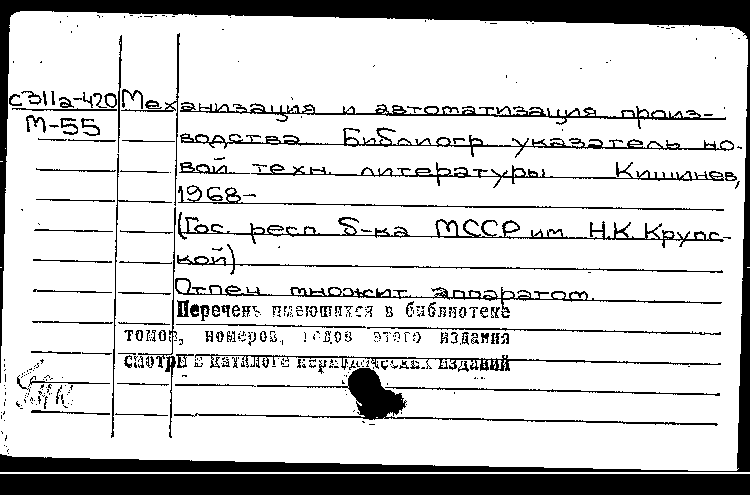 с311а-420 Механизация и автоматизация произ-
М-55 водства Библиогр указатель но-
вой техн. литературы. Кишинев,
1968-
(Гос. респ б-ка МССР им. Н.К. Крупс-
кой)
Отпеч множит аппаратом.
Перечень имеющихся в библиотеке
томов, номеров, годов этого издания
смотри в каталоге периодических изданий